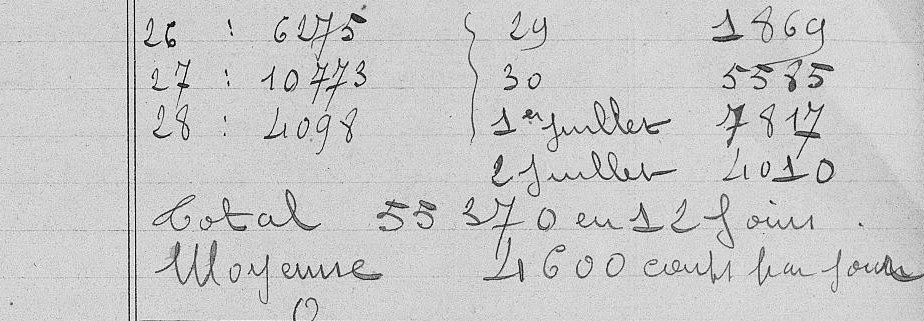 26 : 6275 29 1869
27 : 10773 30 5585
28 : 4098 1er juillet 7817
2 juillet 4010
Total 55 370 en 12 jours.
Moyenne 4600 coups par jour